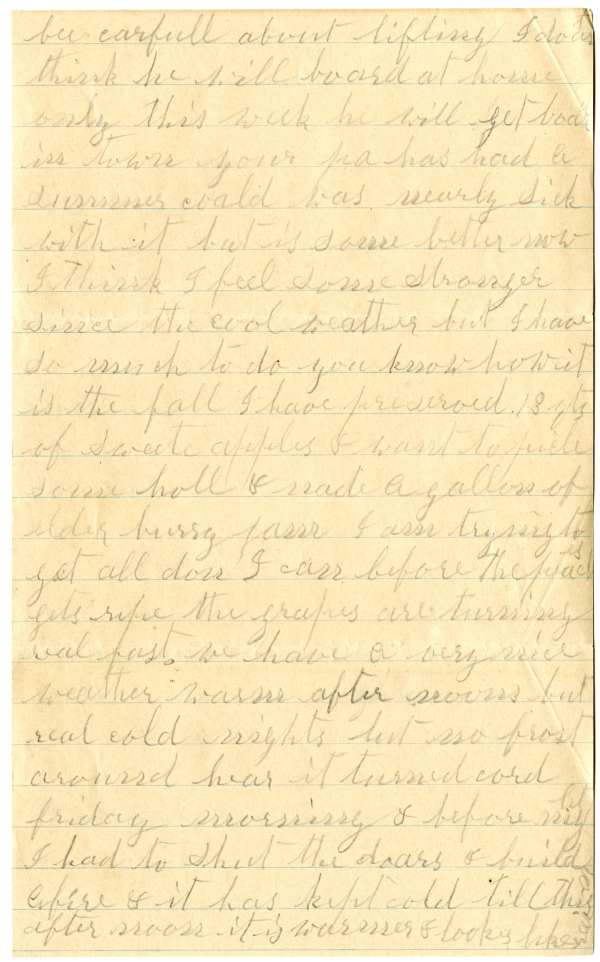 bee carfull about lifting I dont
think he will board at home
only this week he will get boar
in town your pa has had a
summer coald was nearly sick
with it but is some better now
I think I feel some stronger
since the cool weather but I have
so much to do you know how it
is the fall I have preserved 18 qts
of sweete apples & want to picle
some holl & made a gallon of
elder burry jamr I am trying to
get all don I can before the peaches
gets ripe the grapes are turning
real fast, we have a very nice
weather warm after noons but
real cold nights but no frost
around hear it turned cord
friday morning & before night
I had to shut the doars & build
a fire & it has kept cold till this
after noon it is warmer & looks like